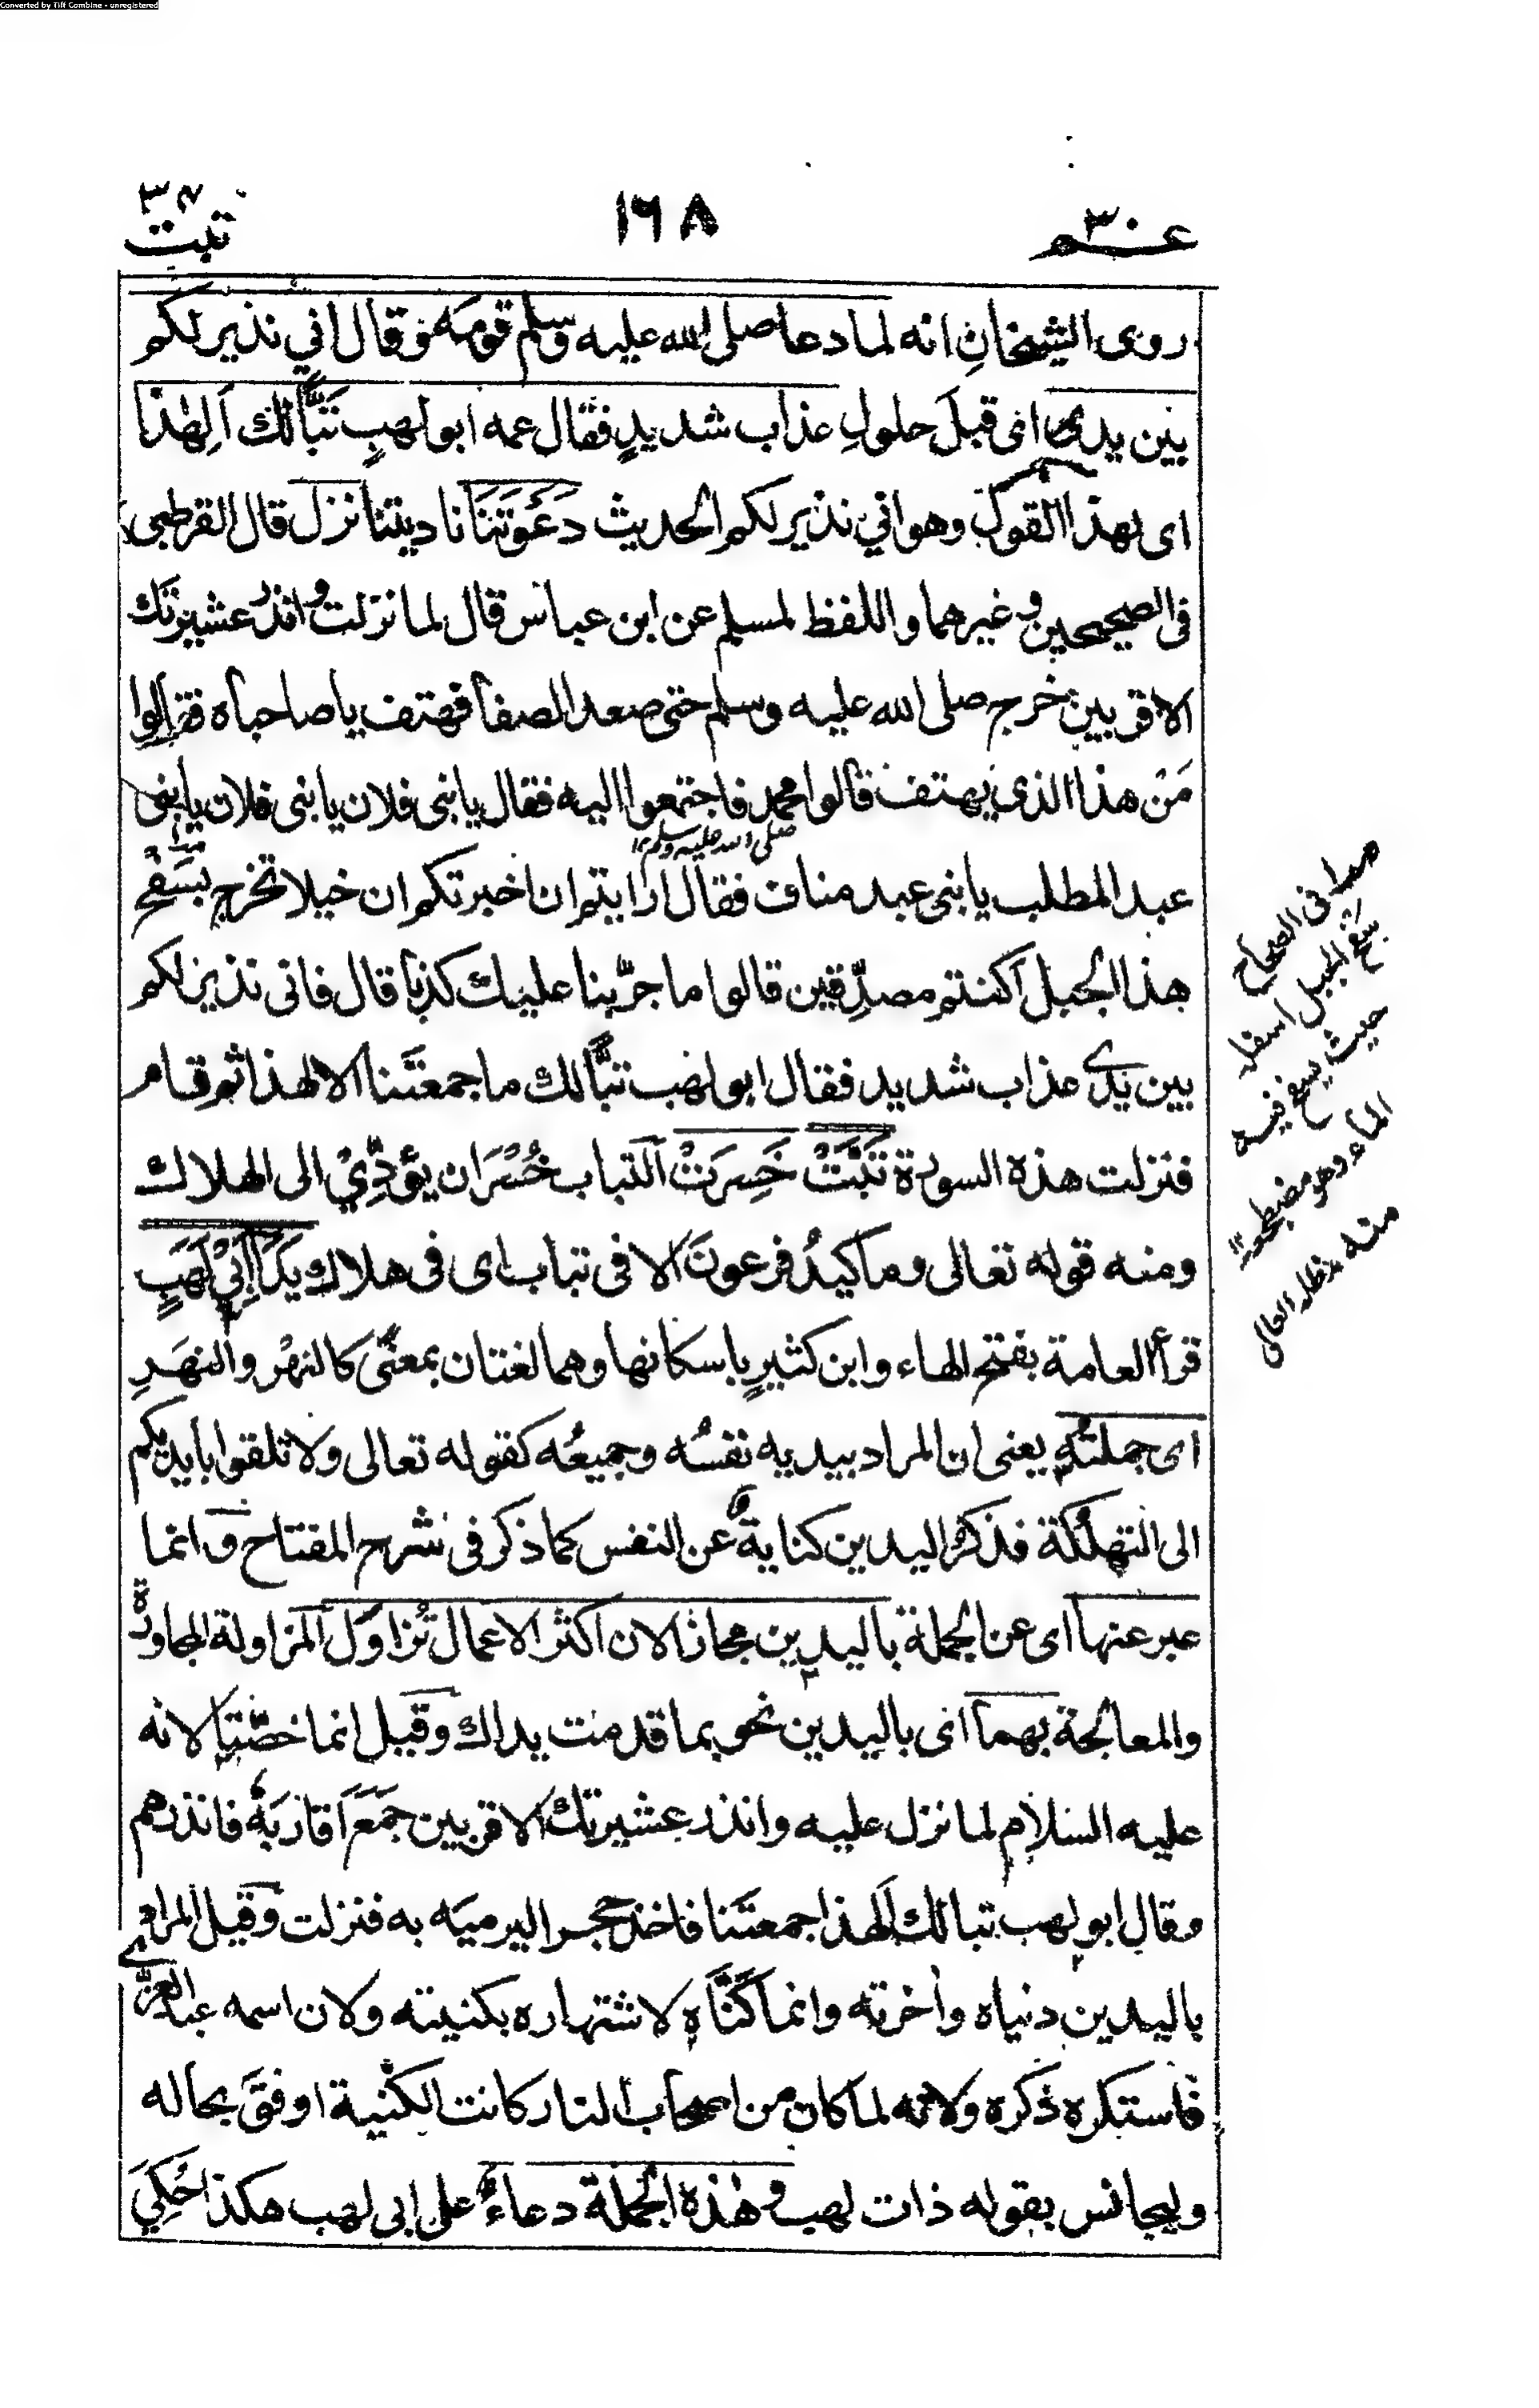 Converted by Tiff Combine - unregistered
عم ٣٠
١٦٨
تبت
روى الشيخانِ انه لما دعا صلى الله عليه وسلم قومَه وقال اني نذير لكم
بين يدى اى قبلَ حلولِ عذاب شديدٍ فقال عمه ابو لهبٍ تَبًّا لك اَلِهٰذا
اى لهذا القول وهو اني نذير لكم الحديث دَعَوتَنَا ناديتنا نزل قال القرطبى
فى الصحيحين وغيرهما واللفظ لمسلم عن ابن عباس قال لما نزلت وانذر عشيرتك
الاقربين خرج صلى الله عليه وسلم حتى صعد الصفا فهتف يا صاحباه فقالوا
مَنْ هذا الذي يهتف قالوا محمد فاجتمعوا اليه فقال يا بنى فلان يا بنى فلان يا بنى
صلى الله عليه وسلم
عبد المطلب يا بنى عبد مناف فقال ارايتم ان اخبرتكم ان خيلا تخرج بسَفْح
هذا الجبل اكنتم مصدِّقين قالوا ما جرَّبنا عليك كذبا قال فانى نذير لكم
بين يَدَي عذاب شديد فقال ابو لهب تبًّا لك ما جمعتَنا الا لهذا ثم قام
فنزلت هذه السورة تَبَّتْ خَسِرَتْ التباب خُسْرَان يؤدِّيْ الى الهلاك
ومنه قوله تعالى وما كيدُ فرعونَ الا فى تباب اى فى هلاك يَدَا اَبِيْ لَهَبٍ
قرأ العامة بفتح الهاء وابن كثيرٍ باسكانها وهما لغتان بمعنًى كالنهْر والنهَرِ
اى جملتُه يعنى ان المراد بيديه نفسُه وجميعُه كقوله تعالى ولا تلقوا بايديكم
الى التهلُكة فذكرُ اليدين كناية عن النفس كما ذكر فى شرح المفتاح وانما
عبر عنها اى عن الجملة باليدين مجازا لان اكثر الاعمال تُزاوَل المزاولة المجاوزة
والمعالجة بهما اى باليدين نحو بما قدمت يداك وقيل انما خصّتا لانه
عليه السلام لما نزل عليه وانذر عشيرتك الاقربين جمَعَ اَقاربَهُ فانذرهم
وقال ابو لهب تبا لك اَلهذا جمعتَنا فاخذ حجرا ليرميَه به فنزلت وقيل المراد
باليدين دنياه واُخرته وانما كَنَّاه لاشتهاره بكنيته ولان اسمه عبد العزّى
فاستكره ذكره ولانه لما كان من اصحاب النار كانت الكنية اوفقَ بحاله
وليجانس بقوله ذات لهب وهٰذه الجملة دعاءٌ على ابى لهب هكذا حُكِيَ
فى الصحاح
سفح الجبل اسفله
حيث يسفح فيه
الماء وهو مضطجعه
منه مدظله العالى